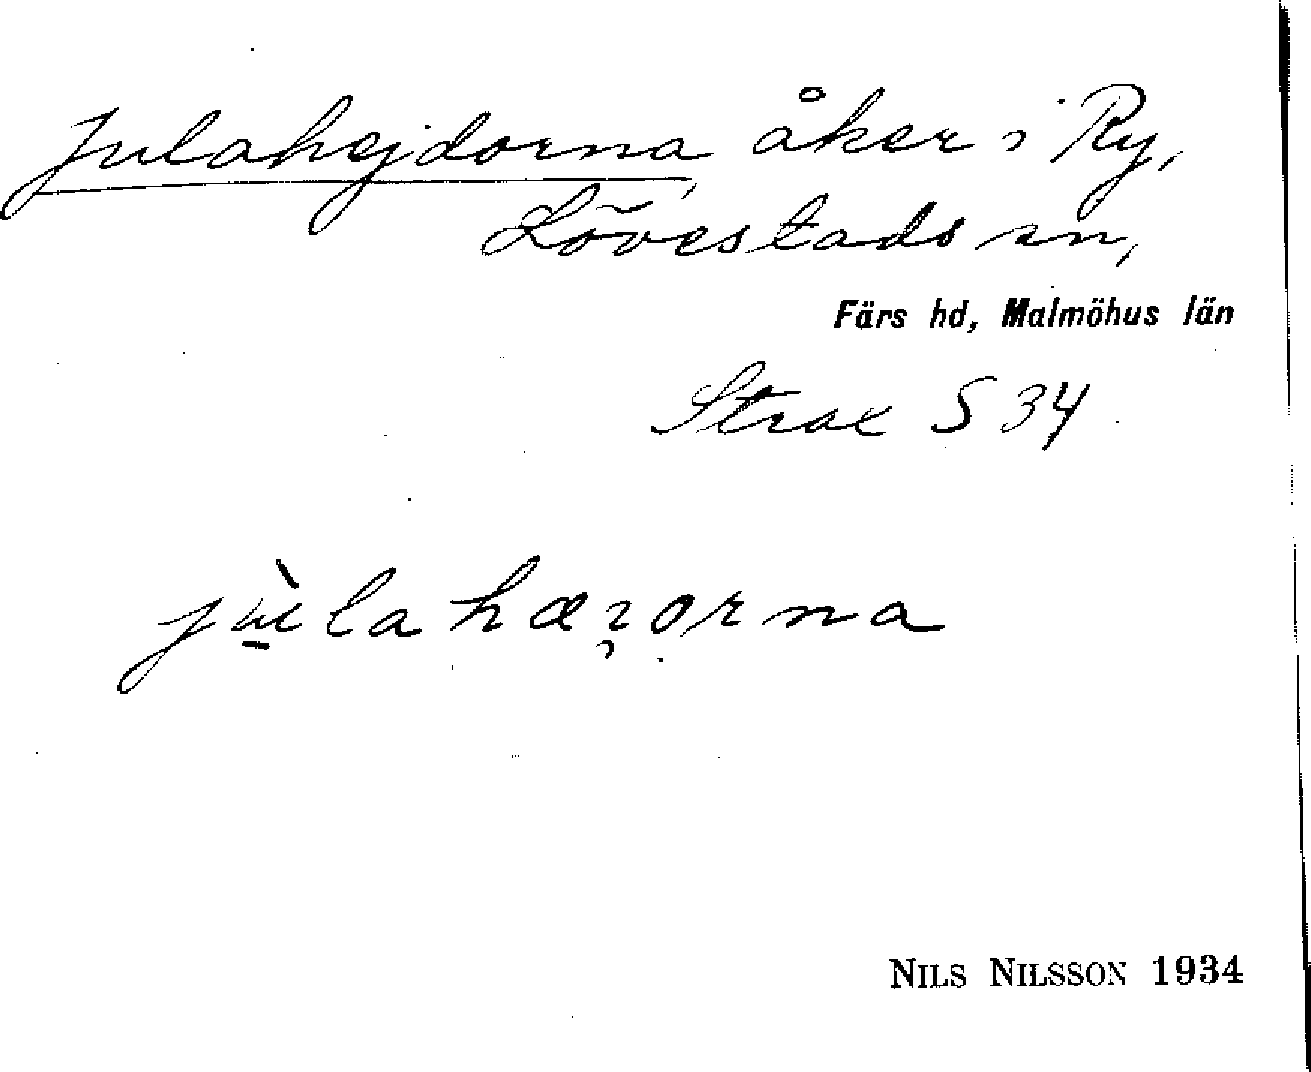 Julahejdorna, åker i Ry,
Lövestads sn,
Färs hd, Malmöhus län
Strax S 34
NILS NILSSON 1934